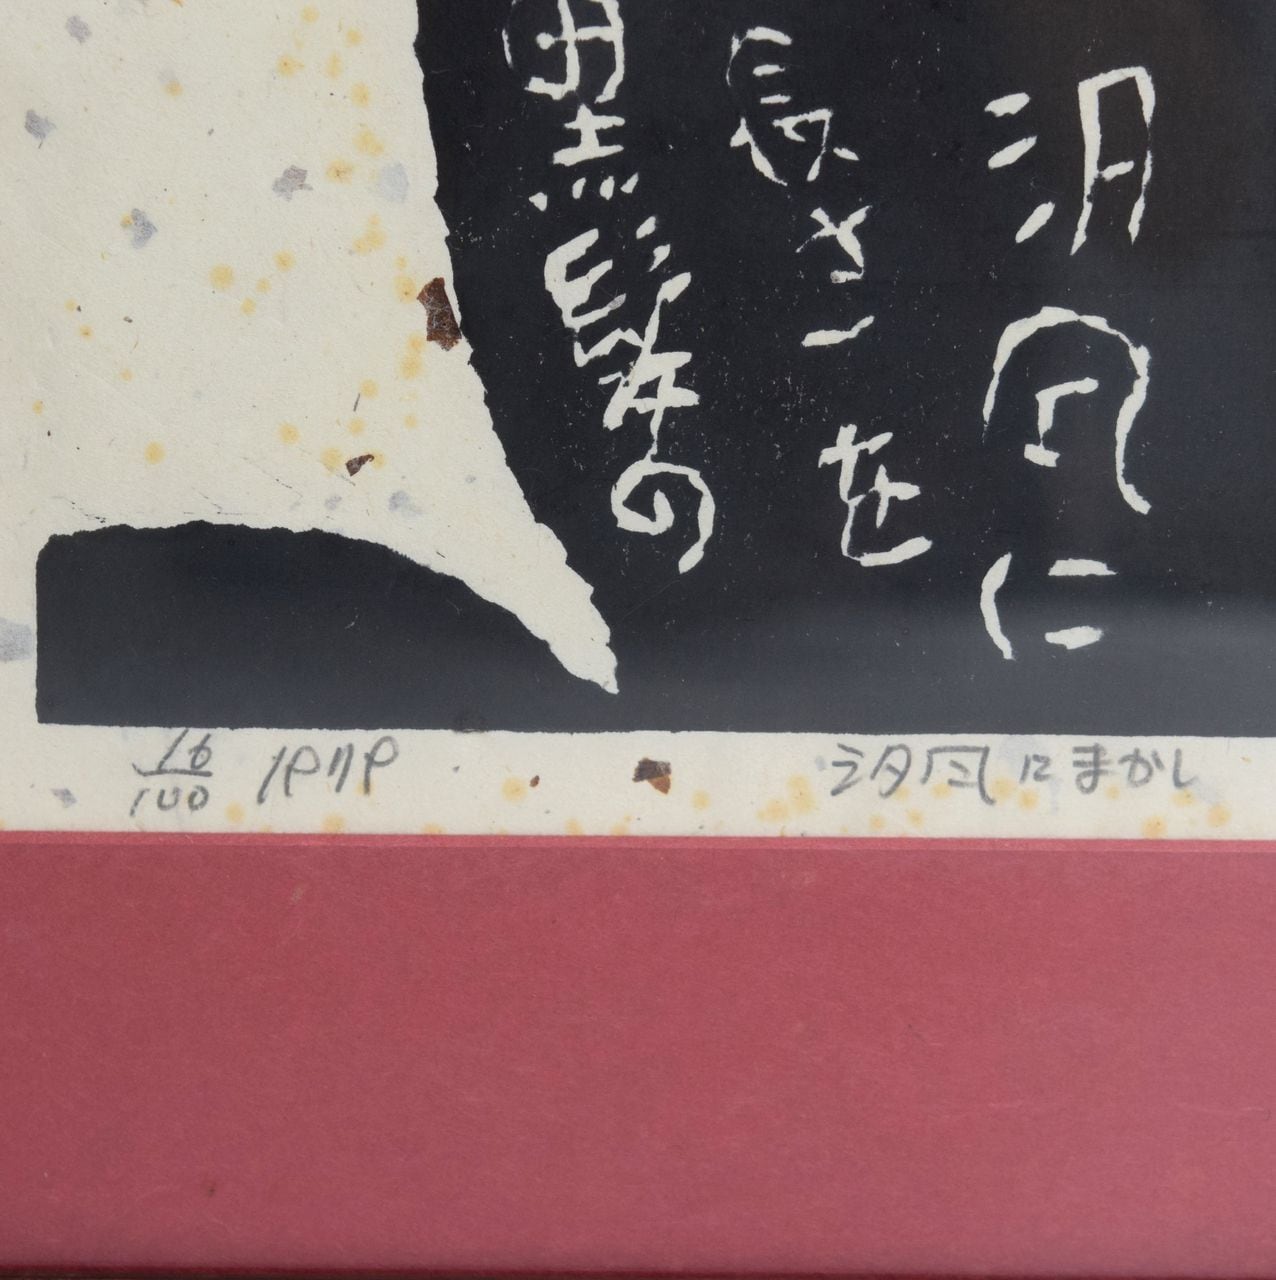 汐風に
長さを
黒髪の
16/100
汐風にまかし